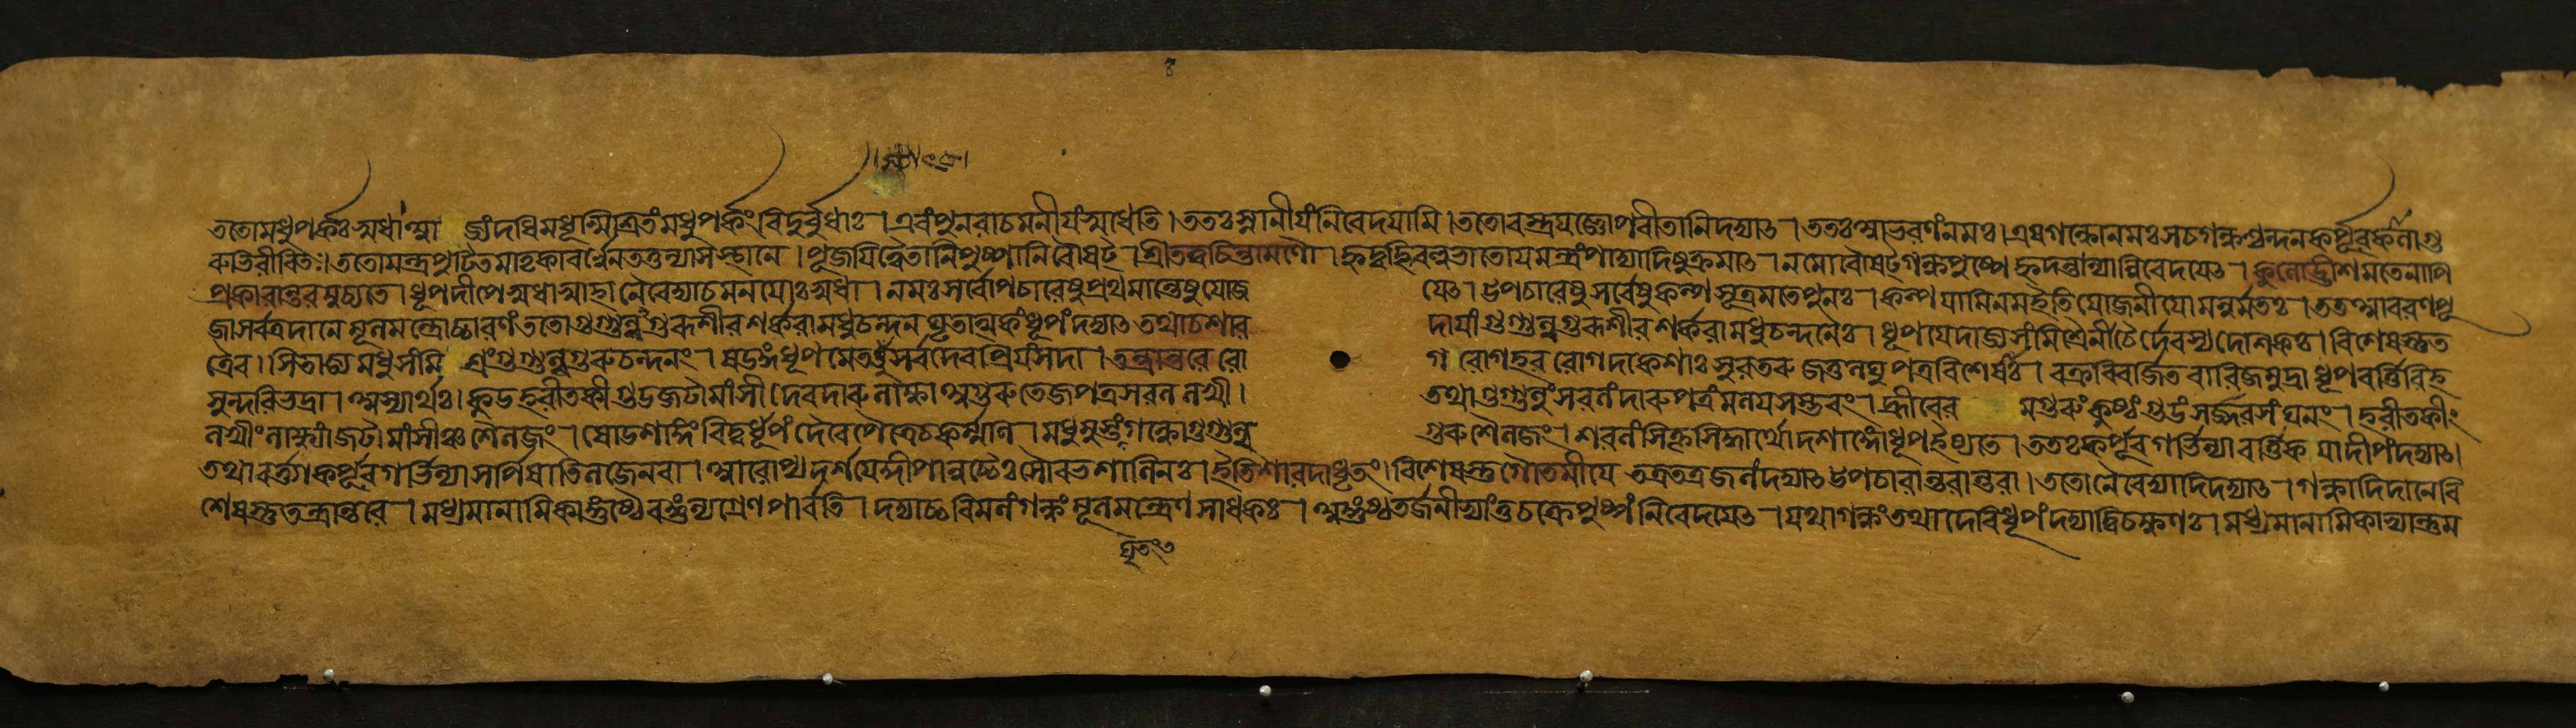 ততোমধুপর্কঃস্বধান্মা জ্যংদধিমধূন্মিশ্রিতংমধুপর্কংবিদুর্বুধাঃ। এবংপুনরাচমনীয়ংস্বধেতি। ততঃস্নানীয়ংনিবেদয়ামি। ততোবস্ত্রযজ্ঞোপবীতানিদদ্যাৎ। ততঃআভরণংনমঃ। এষগন্ধোনমঃসচগন্ধশ্চন্দনকর্পূরকালাগু
রুভিরীরিতঃ। ততোমন্ত্রপুটিতমাতৃকাবর্ণেনতত্তন্ন্যাসস্থানে। পূজয়িত্বৈতানিপুষ্পানিবৌষট্। শ্রীতত্ত্বচিন্তামণৌ। পাদ্যাদিষুক্রমাৎ। নমোবৌষট্গন্ধপুষ্পে হৃদন্তাভ্যান্নিবেদয়েৎ। কুলোড্ডীশমতেনাপি
প্রকারান্তরমুচ্যতে। ধূপদীপেস্বধাস্বাহানৈবেদ্যাচমনয়োঃস্বধা। নমঃসর্বোপচারেষুপ্রথমান্তেষুযোজ য়েৎ। উপচারেষুসর্বেষুকল্পসূত্রমতেপুনঃ। কল্পয়ামিনমইতিযোজনীয়োমনুর্মতঃ। ততআবরণপূ
জাসর্বত্রদানেমূলমন্ত্রোচ্চারণংততোগুগ্গুল্বগুরূশীরশর্করামধুচন্দনঘৃতাত্মকংধূপংদদ্যাৎতথাচশার দায়াংগুগ্গুল্বগুরূশীরশর্করামধুচন্দনৈঃ। ধূপয়েদাজ্যসংমিশ্রৈর্নীচৈর্দেবস্যদেশিকঃ। বিশেষস্তুত
ত্রৈব। সিতাজ্যমধুসংমি শ্রংগুগ্গুল্বগুরুচন্দনং। ষড়ঙ্গংধূপমেতত্তুসর্বদেবপ্রিয়ংসদা। তন্ত্রান্তরে রো গ রোগহর রোগদকেশাঃ সুরতরুজতুলঘুপত্রবিশেষাঃ। বক্রবিবর্জিতবারিজমুদ্রা ধূপবর্ত্তিরিহ
সুন্দরিভদ্রা। অস্যার্থঃ। কুড়হরীতকীগুড়জটামাংসীদেবদারুলাক্ষাঅগুরুতেজপত্রসরলনখী। তথাগুগ্গুলুংসরলংদারুপত্রংমলয়সম্ভবং। হ্রীবের মগুরুংকুষ্ঠংগুড়ংসর্জ্জরসংঘনং। হরীতকীং
নখীংলাক্ষাংজটামাংসীঞ্চশৈলজং। ষোড়শাঙ্গংবিদুর্ধূপংদৈবেপৈত্রেচকর্ম্মণি। মধুমুস্তংগন্ধোগুগ্গুল্ব গুরুশৈলজং। শরলংসিহ্লসিদ্ধার্থোদশাঙ্গোধূপইষ্যতে। ততঃকর্পূরগর্ভিণ্যাবর্ত্তিকয়াদীপংদদ্যাৎ।
তথাবর্ত্ত্যাকর্পূরগর্ভিণ্যাসর্পিষাতিলজেনবা। আরোপ্যদর্শয়েদ্দীপানুচ্চৈঃসৌরভশালিনঃ। ইতিশারদাধৃতং। বিশেষস্তুগৌতমীয়ে তত্রতত্রজলংদদ্যাৎউপচারান্তরান্তরা। ততোনৈবেদ্যাদিদদ্যাৎ। গন্ধাদিদানেবি
শেষস্তুতন্ত্রান্তরে। মধ্যমানামিকাঙ্গুষ্ঠৈরঙ্গুল্যগ্রেণপার্বতি। দদ্যাচ্চবিমলংগন্ধংমূলমন্ত্রেণসাধকঃ। অঙ্গুষ্ঠতর্জনীভ্যাংতুচক্রেপুষ্পংনিবেদয়েৎ। যথাগন্ধংতথাদেবিধূপংদদ্যাদ্বিচক্ষণঃ। মধ্যমানামিকাভ্যান্তুম